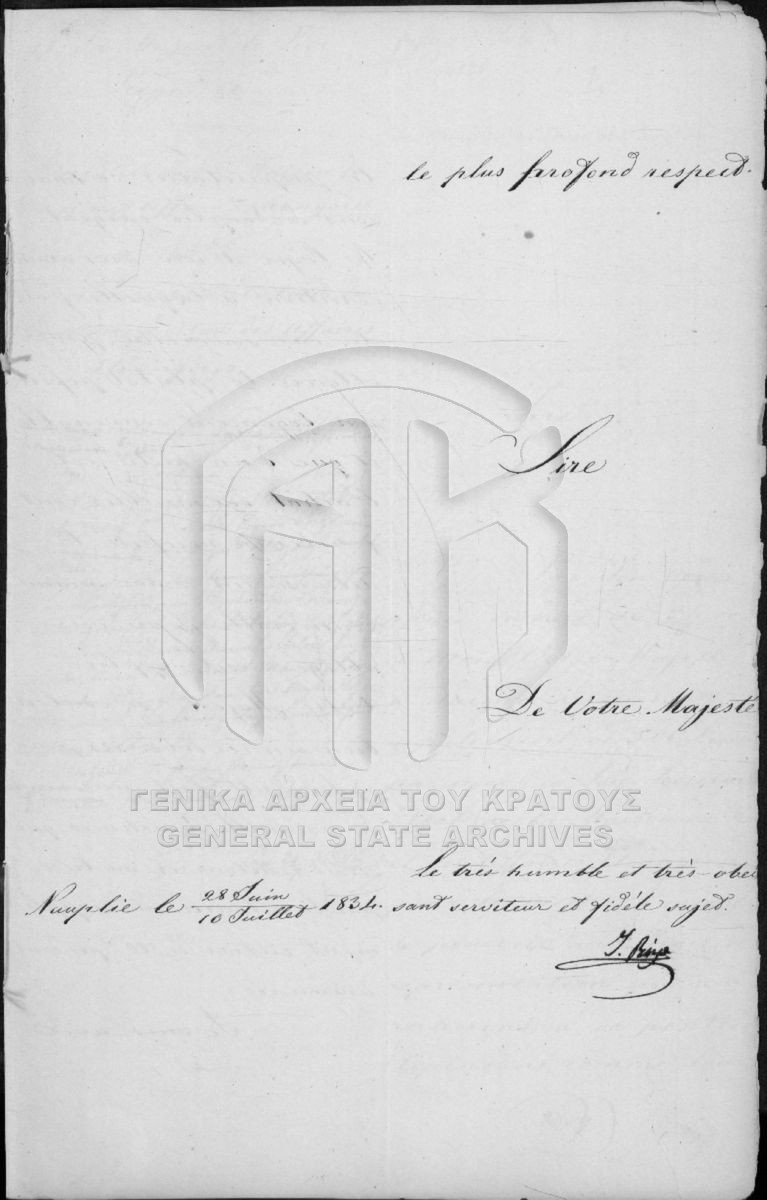 le plus profond respect.
Sire
De Votre Majesté
ΓΕΝΙΚΑ ΑΡΧΕΙΑ ΤΟΥ ΚΡΑΤΟΥΣ
GENERAL STATE ARCHIVES
Le très humble et très obéi
Nauplie le 28 Juin / 10 Juillet 1834. sant serviteur et fidéle sujet.
J. Rizo